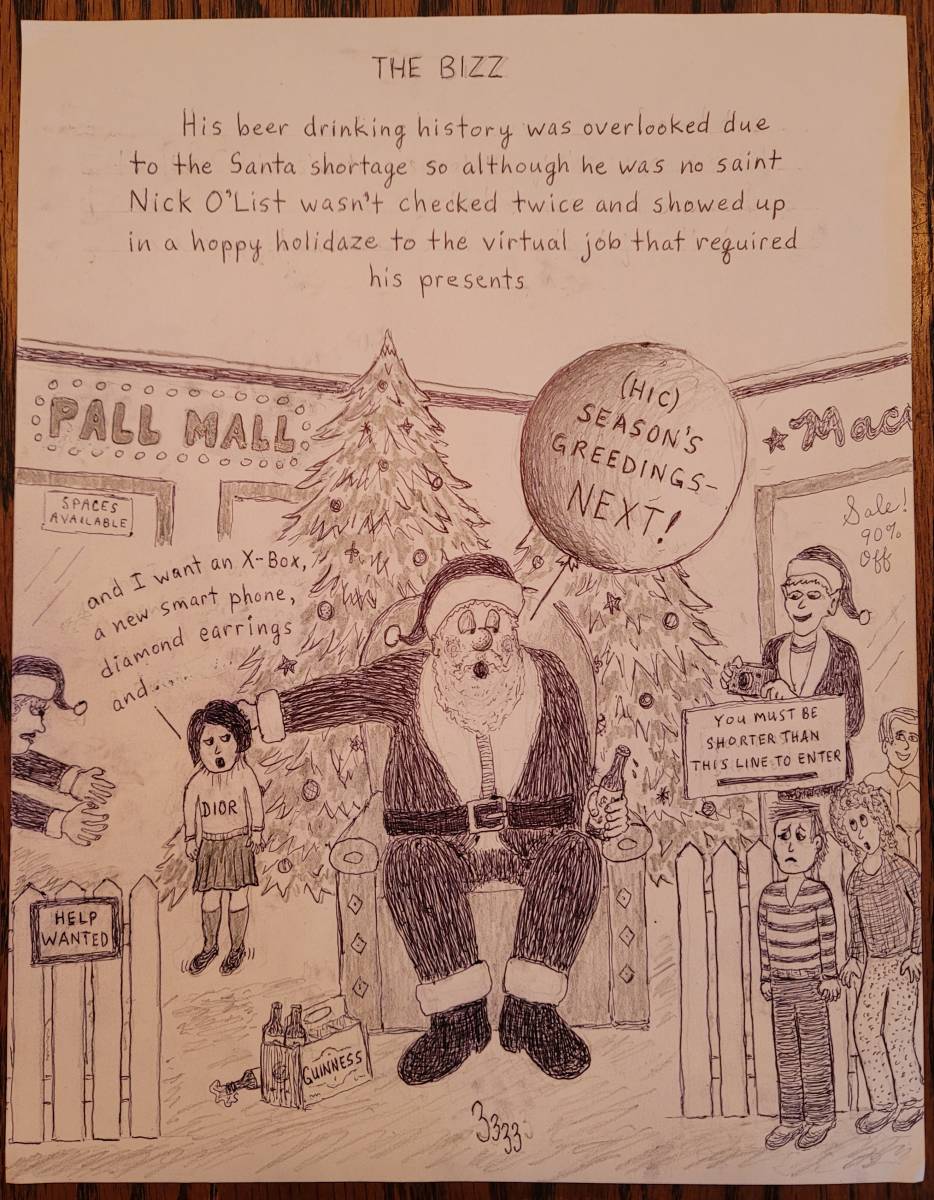 THE BIZZ
His beer drinking history was overlooked due
to the Santa shortage so although he was no saint
Nick O'List wasn't checked twice and showed up
in a hoppy holidaze to the virtual job that required
his presents
PALL MALL
SPACES
AVAILABLE
(HIC)
SEASON'S
GREEDINGS-
NEXT!
Maci
Sale!
90%
Off
and I want an X-Box,
a new smart phone,
diamond earrings
and.....
DIOR
YOU MUST BE
SHORTER THAN
THIS LINE TO ENTER
HELP
WANTED
GUINNESS